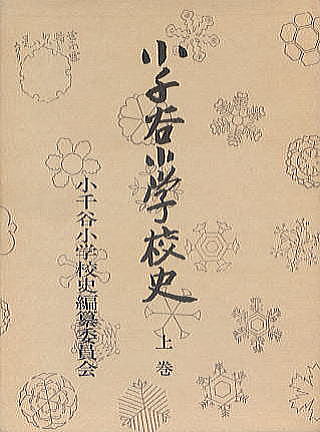 小千谷小学校史
上巻
小千谷小学校史編纂委員会